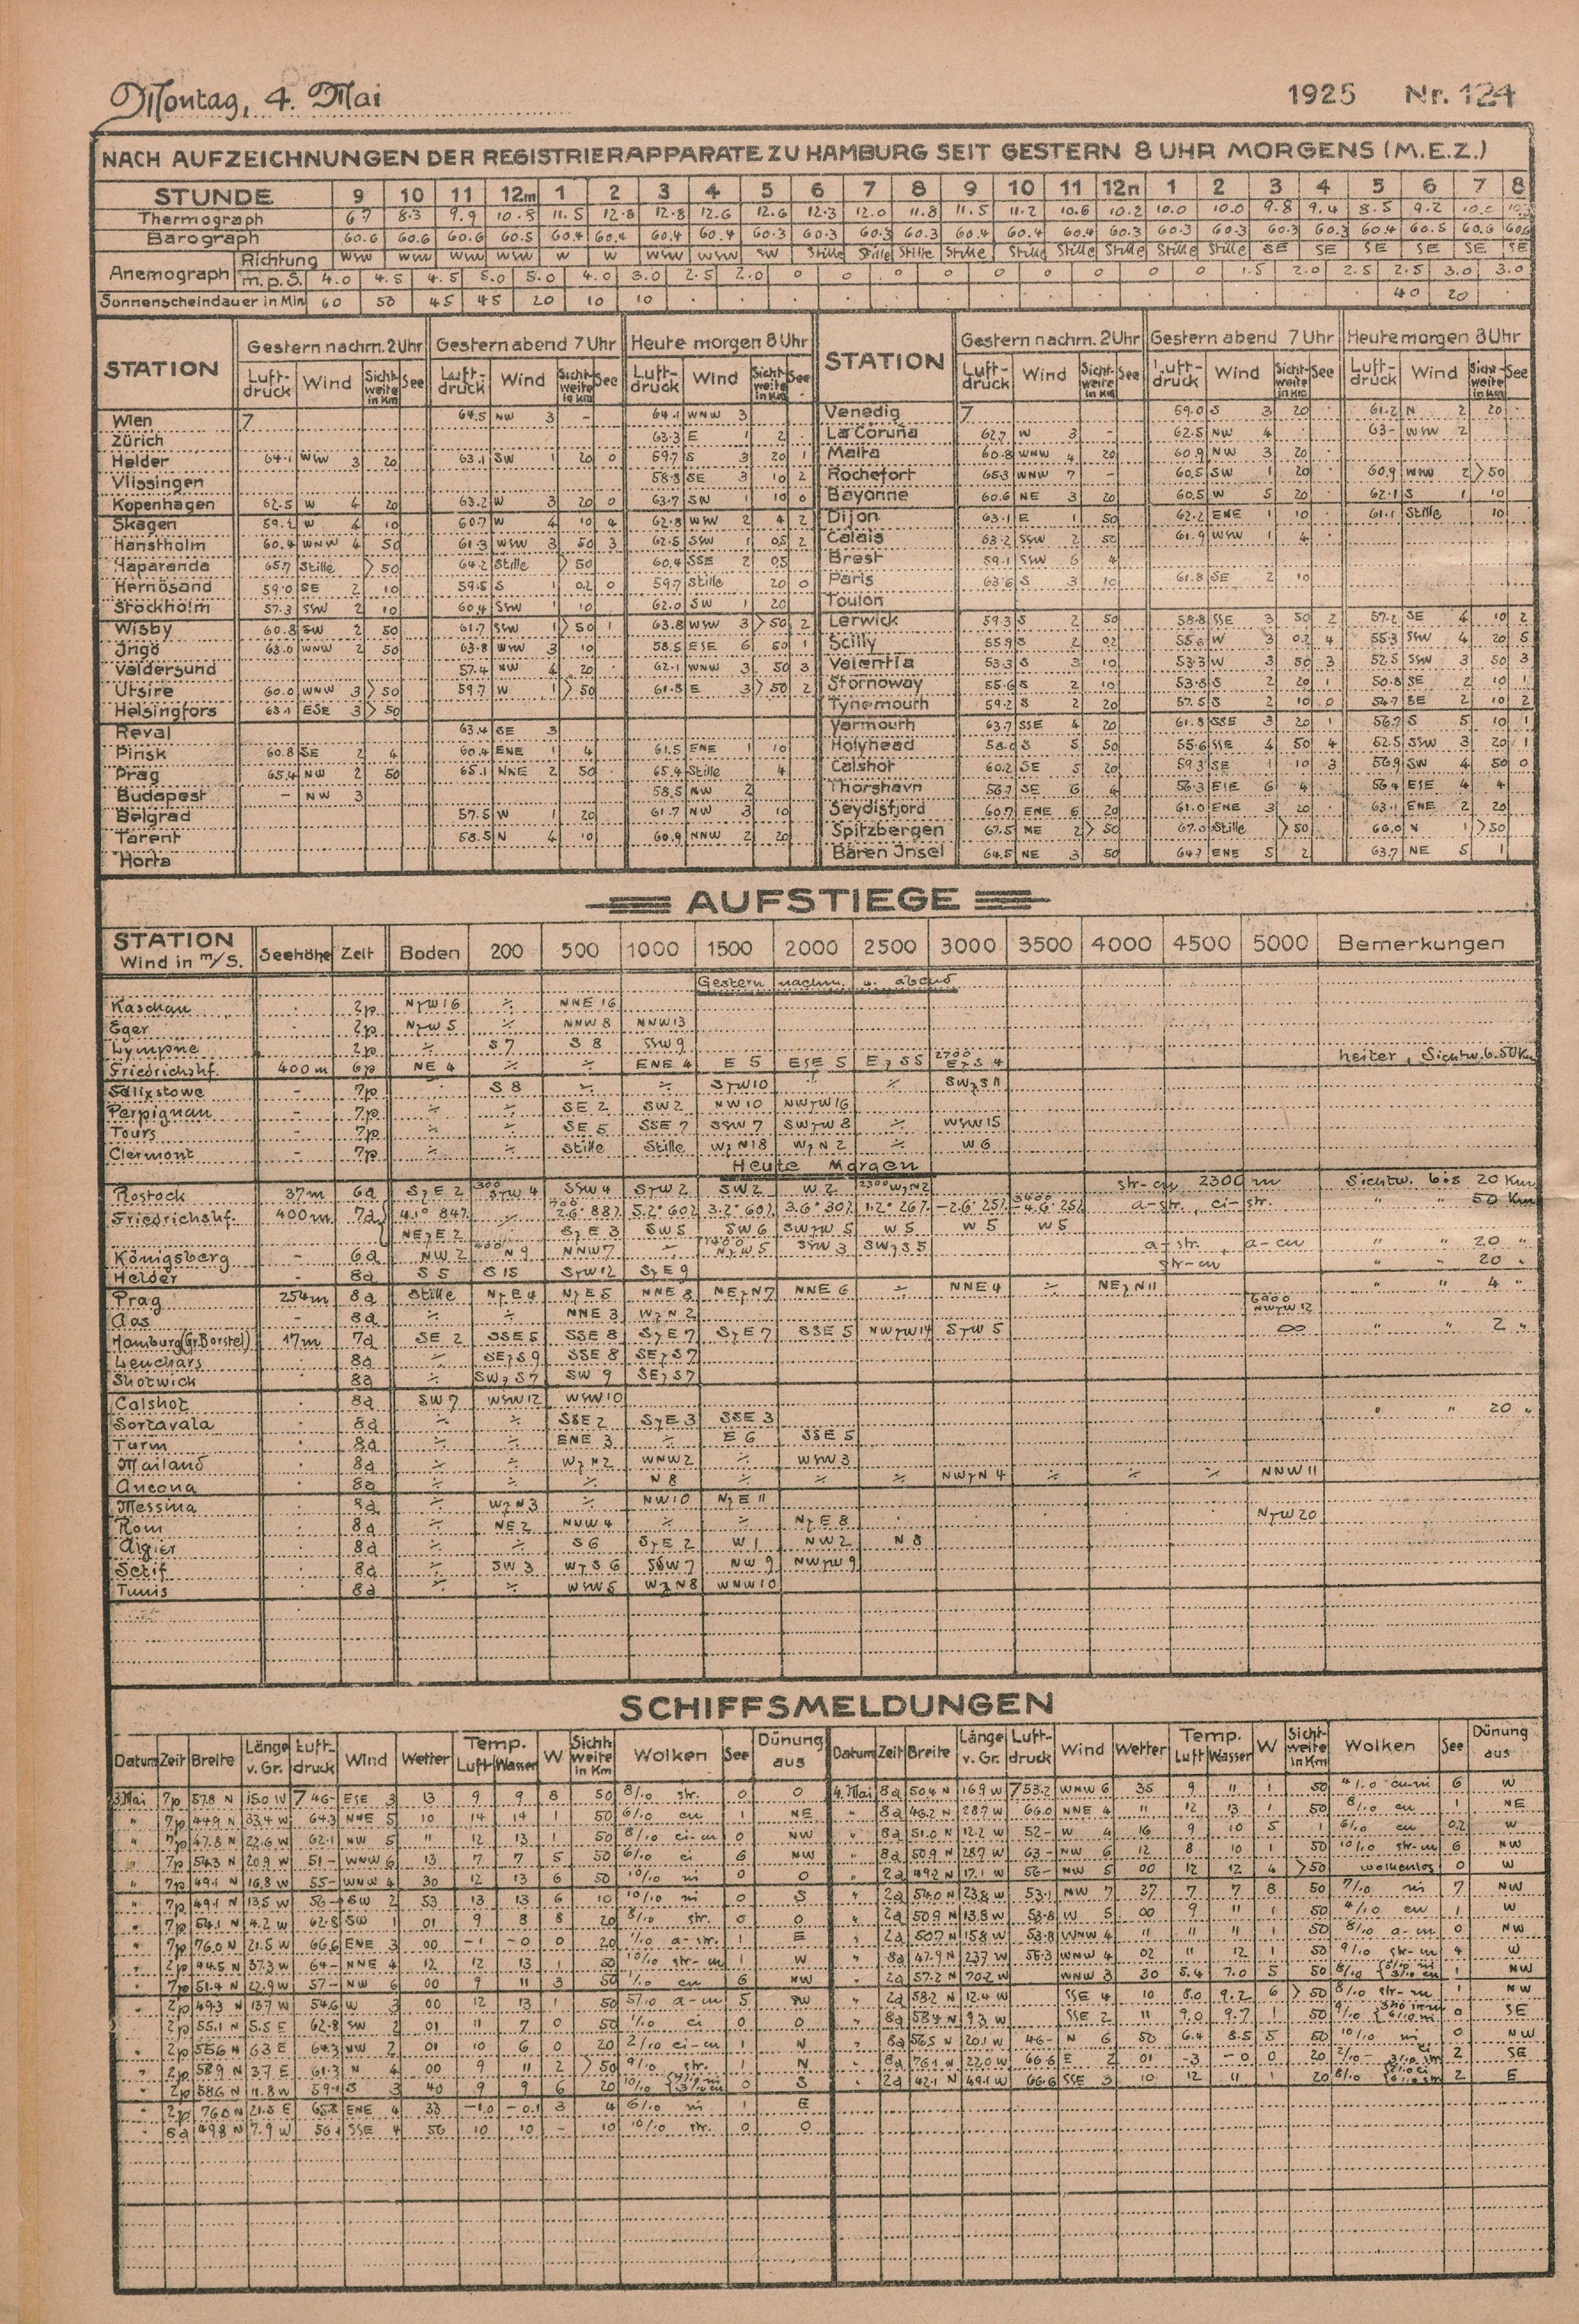 Montag, 4. Mai 1925 Nr. 124
NACH AUFZEICHNUNGEN DER REGISTRIERAPPARATE ZU HAMBURG SEIT GESTERN 8 UHR MORGENS (M.E.Z.)
STUNDE 9 10 11 12m 1 2 3 4 5 6 7 8 9 10 11 12n 1 2 3 4 5 6 7 8
Thermograph 6.7 8.3 9.9 10.8 11.5 12.8 12.8 12.6 12.6 12.3 12.0 11.8 11.5 11.2 10.6 10.2 10.0 10.0 9.8 9.4 8.5 9.2
Barograph 60.6 60.6 60.6 60.5 60.4 60.4 60.4 60.4 60.3 60.3 60.3 60.3 60.4 60.4 60.4 60.3 60.3 60.3 60.3 60.3 60.4 60.5 60.6 60.6
Anemograph Richtung WSW WSW WSW W W WSW WSW SW Stille Stille Stille Stille Stille Stille Stille Stille Stille SE SE SE SE SE SE
m.p.S. 4.0 4.5 4.5 5.0 5.0 4.0 3.0 2.5 2.0 0 0 0 0 0 0 0 0 0 1.5 2.0 2.5 2.5 3.0 3.0
Sonnenscheindauer in Min 60 50 45 45 20 10 10 . . . . . . . . . . . . . . 40 20
STATION Gestern nachm. 2 Uhr Gestern abend 7 Uhr Heute morgen 8 Uhr STATION Gestern nachm. 2 Uhr Gestern abend 7 Uhr Heute morgen 8 Uhr
Luftdruck Wind Sichtweite in Km See Luftdruck Wind Sichtweite in Km See Luftdruck Wind Sichtweite in Km See Luftdruck Wind Sichtweite in Km See Luftdruck Wind Sichtweite in Km See Luftdruck Wind Sichtweite in Km See
Wien 7 64.5 NW 3 - 64.1 WNW 3 Venedig 7 59.0 S 3 20 . 61.2 N 2 20 .
Zürich 63.3 E 1 2 . La Coruña 62.7 W 3 - 62.5 NW 4 . 63- WSW 2
Helder 64.1 WSW 3 20 63.1 SW 1 20 0 59.7 S 3 20 1 Malta 60.8 WNW 4 20 60.9 NW 3 20 .
Vlissingen 58.3 SE 3 10 2 Rochefort 65.3 WNW 7 - 60.5 SW 1 20 . 60.9 WNW 2 >50
Kopenhagen 62.5 W 4 20 63.2 W 3 20 0 63.7 SW 1 10 0 Bayonne 60.6 NE 3 20 60.5 W 5 20 . 62.1 S 1 10
Skagen W 4 10 60.7 W 4 10 4 62.8 WSW 2 4 2 Dijon 63.1 E 1 50 62.2 ENE 1 10 . 61.1 Stille 10
Hanstholm 60.4 WNW 4 50 61.3 WSW 3 50 3 62.5 SSW 1 0,5 2 Calais 63.2 SSW 2 50 61.9 WSW 1 4 .
Haparanda 65.7 Stille >50 64.2 Stille >50 60.4 SSE 2 0,5 Brest 59.1 SSW 6 4
Hernösand 59.0 SE 2 10 59.5 S 1 0.2 0 59.7 Stille 20 0 Paris 63.6 S 3 10 61.8 SE 2 10
Stockholm 57.3 SSW 2 10 60.4 SSW 1 10 62.0 SW 1 20 Toulon
Wisby 60.8 SW 2 50 61.7 SSW 1 >50 1 63.8 WSW 3 >50 2 Lerwick 59.3 S 2 50 58.8 SSE 3 50 2 57.2 SE 4 10 2
Jngö 63.0 WNW 2 50 63.8 WSW 3 10 58.5 ESE 6 50 1 Scilly 55.9 S 2 0.2 55.6 W 3 0.2 4 55.3 SSW 4 20 5
Valdersund 57.4 NW 4 20 . 62.1 WNW 3 50 3 Valentia 53.3 S 3 10 53.3 W 3 50 3 52.5 SSW 3 50 3
Utsire 60.0 WNW 3 >50 59.7 W 1 >50 61.8 E 3 >50 2 Stornoway 55.6 S 2 10 53.8 S 2 20 1 50.8 SE 2 10 1
Helsingfors 63.1 ESE 3 >50 Tynemouth 59.2 S 2 20 57.5 S 2 10 0 54.7 SE 2 10 2
Reval 63.4 SE 3 Yarmouth 63.7 SSE 4 20 61.8 SSE 3 20 1 56.7 S 5 10 1
Pinsk 60.8 SE 2 4 60.4 ENE 1 4 61.5 ENE 1 10 Holyhead 58.0 S 5 50 55.6 SSE 4 50 4 52.5 SSW 3 20 1
Prag 65.4 NW 2 50 65.1 NNE 2 50 . 65.4 Stille 4 Calshot 60.2 SE 5 20 59.3 SE 1 10 3 56.9 SW 4 50 0
Budapest - NW 3 58.5 NW 2 Thorshavn 56.7 SE 6 4 56.3 ESE 6 4 56.4 ESE 4 4
Belgrad 57.5 W 1 20 61.7 NW 3 10 Seydisfjord 60.7 ENE 6 20 61.0 ENE 3 20 . 63.1 ENE 2 20
Tarent 58.5 N 4 10 60.9 NNW 2 20 Spitzbergen 67.5 NE 2 >50 67.0 Stille >50 66.0 N 1 >50
Horta Bären Jnsel 64.5 NE 3 50 64.7 ENE 5 2 63.7 NE 5 1
AUFSTIEGE
STATION Wind in m/s. Seehöhe Zeit Boden 200 500 1000 1500 2000 2500 3000 3500 4000 4500 5000 Bemerkungen
Gestern nachm. u. abend
Kaschau . 2p NzW 16 ÷ NNE 16
Eger . 2p NzW 5 ÷ NNW 8 NNW 13
Lympne 2p ÷ S 7 S 8 SSW 9
Friedrichshf. 400m 6p NE 4 ÷ ÷ ENE 4 E 5 ESE 5 EzS 5 2700 EzS 4 heiter, Sichtw. 6. 50 Km
Felixstowe - 7p S 8 ÷ ÷ SzW 10 ÷ ÷ SWzS 11
Perpignan - 7p ÷ ÷ SE 2 SW 2 NW 10 NWzW 16
Tours - 7p ÷ ÷ SE 5 SSE 7 SSW 7 SWzW 8 ÷ WSW 15
Clermont - 7p ÷ ÷ Stille Stille WzN 18 WzN 2 ÷ W 6
Heute Morgen
Rostock 37m 6a SzE 2 300 SzW 4 SSW 4 SzW 2 SW 2 W 2 2300 WzN 2 str-cu 2300 m Sichtw. bis 20 Km
Friedrichshf. 400m 7a 4.1° 84% ÷ 700 7.6° 88% 5.2° 60% 3.2° 60% 3.6° 30% 1.2° 26% -2.6° 25% 3400 -4.6° 25% a-str., ci-str. " " 50 Km
NEzE 2 SzE 3 SW 5 SW 6 SWzW 5 W 5 W 5 W 5
Königsberg - 6a NW 2 N 9 NNW 7 ÷ NzW 5 SSW 3 SWzS 5 a-str., a-cu " " 20 "
Helder - 8a S 5 S 15 SzW 12 SzE 9 str-cu " " 20 "
Prag 254m 8a Stille NzE 4 NzE 5 NNE 8 NEzN 7 NNE 6 ÷ NNE 4 ÷ NEzN 11 " " 4 "
Aas - 8a ÷ ÷ NNE 3 WzN 2 6000 NWzW 12
Hamburg (Gr. Borstel) 17m 7a SE 2 SSE 5 SSE 8 SzE 7 SzE 7 SSE 5 NWzW 14 SzW 5 ∞ " " 2 "
Leuchars . 8a ÷ SEzS 9 SSE 8 SEzS 7
Shotwick 8a ÷ SWzS 7 SW 9 SEzS 7
Calshot . 8a SW 7 WSW 12 WSW 10
Sortavala . 8a ÷ ÷ SSE 2 SzE 3 SSE 3 " " 20 "
Turin . 8a ÷ ÷ ENE 3 ÷ E 6 SSE 5
Mailand . 8a ÷ ÷ WzN 2 WNW 2 ÷ WSW 3
Ancona . 8a ÷ ÷ ÷ N 8 ÷ ÷ ÷ NWzN 4 ÷ ÷ ÷ NNW 11
Messina . 8a ÷ WzN 3 ÷ NW 10 NzE 11
Rom . 8a ÷ NE 2 NNW 4 ÷ ÷ NzE 8 . . . . . NzW 20
Algier . 8a ÷ ÷ S 6 SzE 2 W 1 NW 2 N 8
Setif . 8a ÷ SW 3 WzS 6 SSW 7 NW 9 NWzW 9
Tunis . 8a ÷ ÷ WSW 5 WzN 8 WNW 10
SCHIFFSMELDUNGEN
Datum Zeit Breite Länge v. Gr. Luftdruck Wind Wetter Temp. Luft Wasser W Sichtweite in Km Wolken See Dünung aus Datum Zeit Breite Länge v. Gr. Luftdruck Wind Wetter Temp. Luft Wasser W Sichtweite in Km Wolken See Dünung aus
3. Mai 7p 57.8 N 15.0 W 7 46- ESE 3 13 9 9 8 50 8/10 str. 0 0 4. Mai 8a 50.4 N 16.9 W 753.2 WNW 6 35 9 11 1 50 4/10 cu-ni 6 W
" 7p 44.9 N 33.4 W 64.3 NNE 5 10 14 14 1 50 6/10 cu 1 NE " 8a 46.2 N 28.7 W 66.0 NNE 4 11 12 13 1 50 8/10 cu 1 NE
" 7p 47.8 N 22.6 W 62.1 NW 5 11 12 13 1 50 8/10 ci-cu 0 NW " 8a 51.0 N 12.2 W 52- W 4 16 9 10 5 1 6/10 cu 0.2 W
" 7p 54.3 N 20.9 W 51- WNW 6 13 7 7 5 50 6/10 ci 6 NW " 8a 50.9 N 28.7 W 63- NW 6 12 8 10 1 50 10/10 str-cu 6 NW
" 7p 49.1 N 16.8 W 55- WNW 4 30 12 13 6 50 10/10 ni 0 0 " 2a 49.2 N 17.1 W 56- NW 5 00 12 12 4 >50 wolkenlos 0 W
7p 49.1 N 13.5 W 56- SW 2 53 13 13 6 10 10/10 ni 0 S " 2a 54.0 N 23.8 W 53.1 NW 7 37 7 7 8 50 7/10 ni 7 NW
" 7p 54.1 N 4.2 W 62.8 SW 1 01 9 8 8 20 8/10 str. 0 0 " 2a 50.9 N 13.8 W 53.8 W 5 00 9 11 1 50 4/10 cu 1 W
" 7p 76.0 N 21.5 W 66.6 ENE 3 00 -1 -0 0 20 1/10 a-str. 1 E " 2a 50.7 N 15.8 W 53.8 WNW 4 11 11 11 1 50 8/10 a-cu 0 NW
" 2p 44.5 N 37.3 W 64- NNE 4 12 12 13 1 50 10/10 str-cu 1 W " 8a 47.9 N 23.7 W 56.3 WNW 4 02 11 12 1 50 9/10 str-cu 4 W
" 7p 51.4 N 22.9 W 57- NW 6 00 9 11 3 50 1/10 cu 6 NW " 2a 57.2 N 70.2 W WNW 3 30 5.4 7.0 5 50 8/10 1 NW
" 2p 49.3 N 13.7 W 54.6 W 3 00 12 13 1 50 5/10 a-cu 5 SW " 2a 58.2 N 12.4 W SSE 4 10 8.0 9.2 6 >50 8/10 str-cu 1 NW
" 2p 55.1 N 5.5 E 62.8 SW 2 01 11 7 0 50 1/10 ci 0 0 " 8a 58.4 N 9.3 W SSE 2 11 9.0 9.7 1 50 9/10 0 SE
" 2p 55.6 N 6.3 E 64.3 NW 2 01 10 6 0 20 2/10 ci-cu 1 N " 8a 56.5 N 20.1 W 46- N 6 50 6.4 8.5 5 50 10/10 ni 0 NW
" 2p 58.9 N 3.7 E 61.3 N 4 00 9 11 2 >50 9/10 str. 1 N " 8a 76.1 N 22.0 W 66.6 E 2 01 -3 -0 0 20 2/10 2 SE
" 2p 58.6 N 11.8 W 59.1 S 3 40 9 9 6 20 10/10 0 S " 2a 42.1 N 49.1 W 66.6 SSE 3 10 12 11 1 20 8/10 2 E
" 2p 76.0 N 21.5 E 65.8 ENE 4 33 -1.0 -0.1 3 4 6/10 ni 1 E
" 8a 49.8 N 7.9 W 56.1 SSE 4 56 10 10 - 10 10/10 str. 0 0